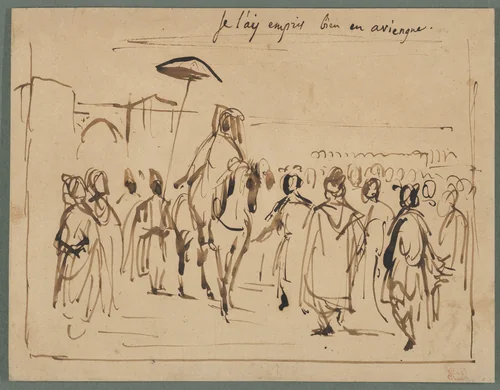 Je l'ay empris bien en aviengne.